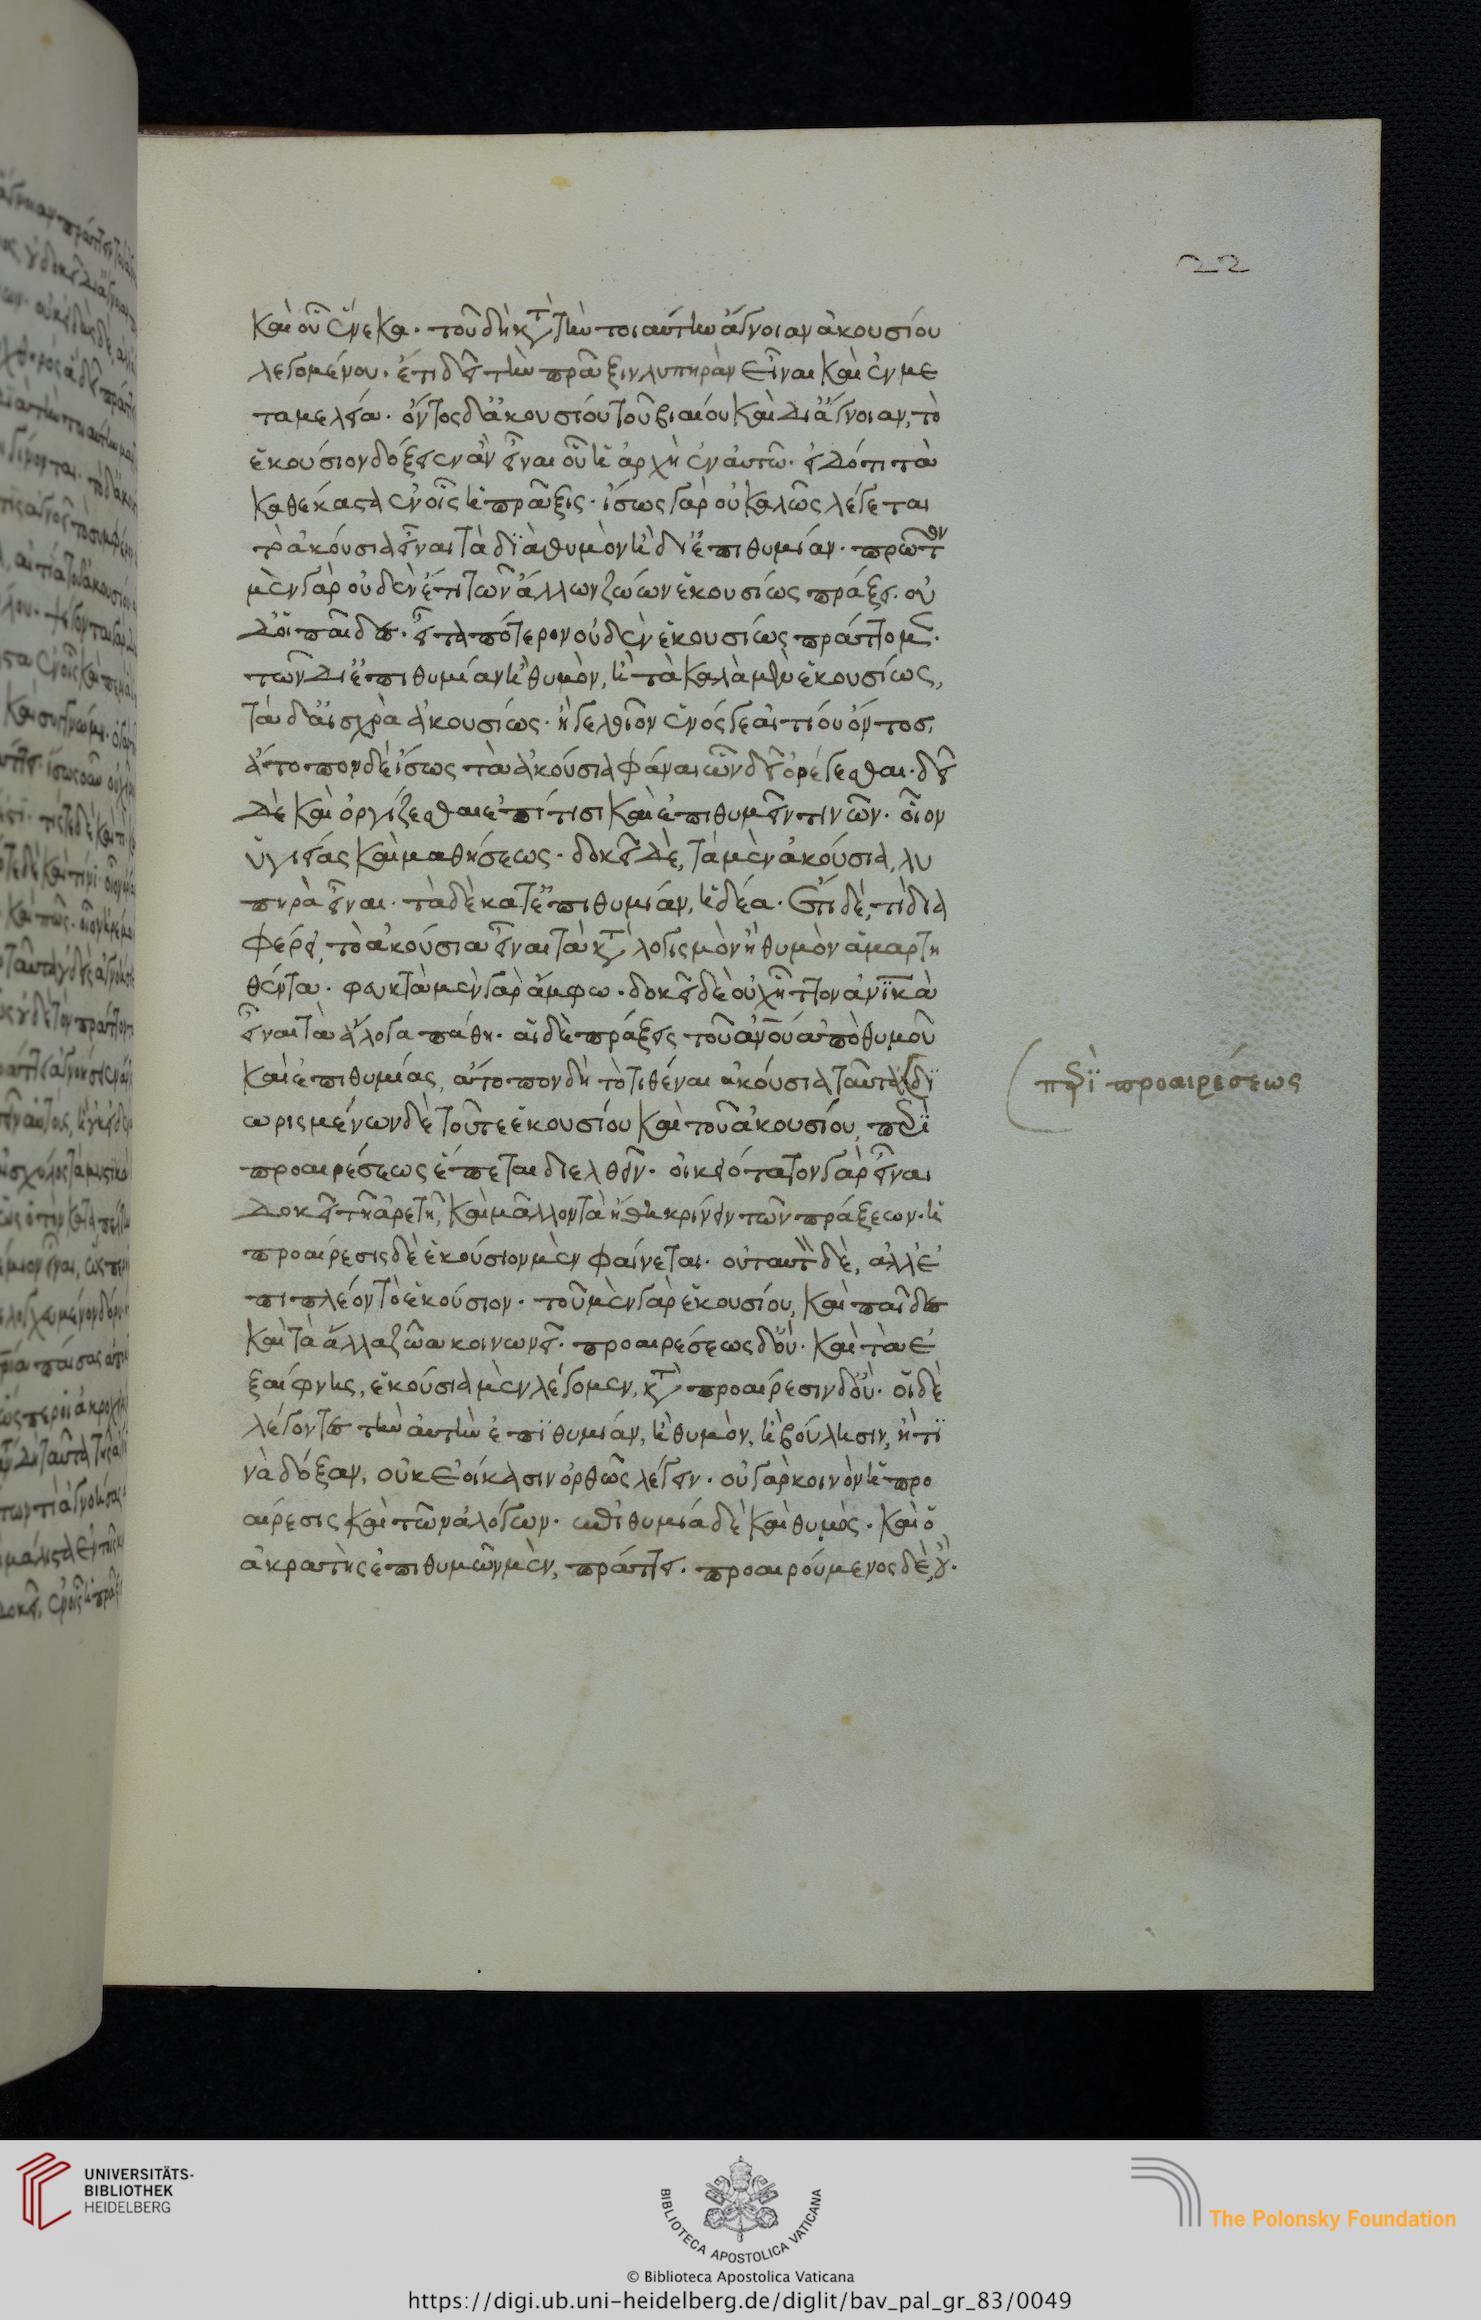 22
καὶ οὗ ἕνεκα. τοῦ δὴ κτ̀ τὴν τοιαύτην ἄγνοιαν ἀκουσίου
λεγομένου. ἔτι δεῖ τὴν πρᾶξιν λυπηρὰν εἶναι καὶ ἐν με
ταμελεία. ὄντος δ' ἀκουσίου τοῦ βιαίου καὶ δι' ἄγνοιαν, τὸ
ἑκούσιον δόξειεν ἂν εἶναι οὗ ἡ ἀρχὴ ἐν αυτῶ. εἰδότι τὰ
καθέκαστα ἐν οἷς ἡ πρᾶξις. ἴσως γὰρ οὐ καλῶς λέγεται
τὰ ἀκούσια εἶναι τὰ διὰ θυμὸν ἢ δι' ἐπιθυμίαν. πρῶτον
μὲν γὰρ οὐδὲν ἔτι τῶν ἄλλων ζώων ἑκουσίως πράξει. οὐ
δ' οἱ παῖδες. εἶτα πότερον οὐδὲν ἑκουσίως πράττομεν
τῶν δι' ἐπιθυμίαν ἢ θυμὸν, ἢ τὰ καλὰ μὲν ἑκουσίως,
τὰ δ' αἰσχρὰ ἀκουσίως. ἢ γελοῖον ἑνός γε αἰτίου ὄντος,
ἄτοπον δὲ ἴσως τὰ ἀκούσια φάναι ὧν δεῖ ὀρέγεσθαι. δεῖ
δὲ καὶ ὀργίζεσθαι ἐπί τισι καὶ ἐπιθυμεῖν τινῶν. οἷον
ὑγιείας καὶ μαθήσεως. δοκεῖ δὲ, τὰ μὲν ἀκούσια, λυ
πηρὰ εἶναι. τὰ δὲ κατ' ἐπιθυμίαν, ἡδέα. ἔτι δὲ, τί δια
φέρει, τὸ ἀκούσια εἶναι τὰ κτ̀ λογισμὸν ἢ θυμὸν ἁμαρτη
θέντα. φευκτὰ μὲν γὰρ ἄμφω. δοκεῖ δὲ οὐχ ἧττον ἀνϊκὰ
εἶναι τὰ ἄλογα πάθη. αἱ δὲ πράξεις τοῦ ἀνου ἀπὸ θυμοῦ
καὶ ἐπιθυμίας, ἄτοπον δὴ τὸ τιθέναι ἀκούσια ταῦτα (δϊ
ωρισμένων δὲ τοῦ τε ἑκουσίου καὶ τοῦ ἀκουσίου, περὶ
προαιρέσεως ἕπεται διελθεῖν. οἰκειότατον γὰρ εἶναι
δοκεῖ τῆ ἀρετῆ, καὶ μᾶλλον τὰ ἤθη κρίνειν τῶν πράξεων. ἡ
προαίρεσις δὲ ἑκούσιον μὲν φαίνεται. οὐ ταυτὸν δὲ, ἀλλ' ἐ
πι πλέον τὸ ἑκούσιον. τοῦ μὲν γὰρ ἑκουσίου, καὶ παῖδες
καὶ τὰ ἄλλα ζῶα κοινωνεῖ. προαιρέσεως δ' οὔ. καὶ τὰ ἐ
ξαίφνης, ἑκούσια μὲν λέγομεν, κτ̀ προαίρεσιν δ' οὔ. οἱ δὲ
λέγοντες τὴν αὐτὴν ἐπϊθυμίαν, ἢ θυμὸν, ἢ βούλησιν, ἤ τϊ
νὰ δόξαν, οὐκ ἐοίκασιν ὀρθῶς λέγειν. οὐ γὰρ κοινὸν ἡ προ
αίρεσις καὶ τῶν ἀλόγων. ἐπιθυμία δὲ καὶ θυμός. καὶ ὁ
ἀκρατὴς ἐπιθυμῶν μὲν, πράττει. προαιρούμενος δὲ, οὔ.
περϊ προαιρέσεως
UNIVERSITÄTS-
BIBLIOTHEK
HEIDELBERG
BIBLIOTECA APOSTOLICA VATICANA
© Biblioteca Apostolica Vaticana
The Polonsky Foundation
https://digi.ub.uni-heidelberg.de/diglit/bav_pal_gr_83/0049